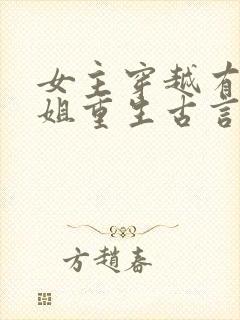 女主穿越有
姐重生古言
方趙春